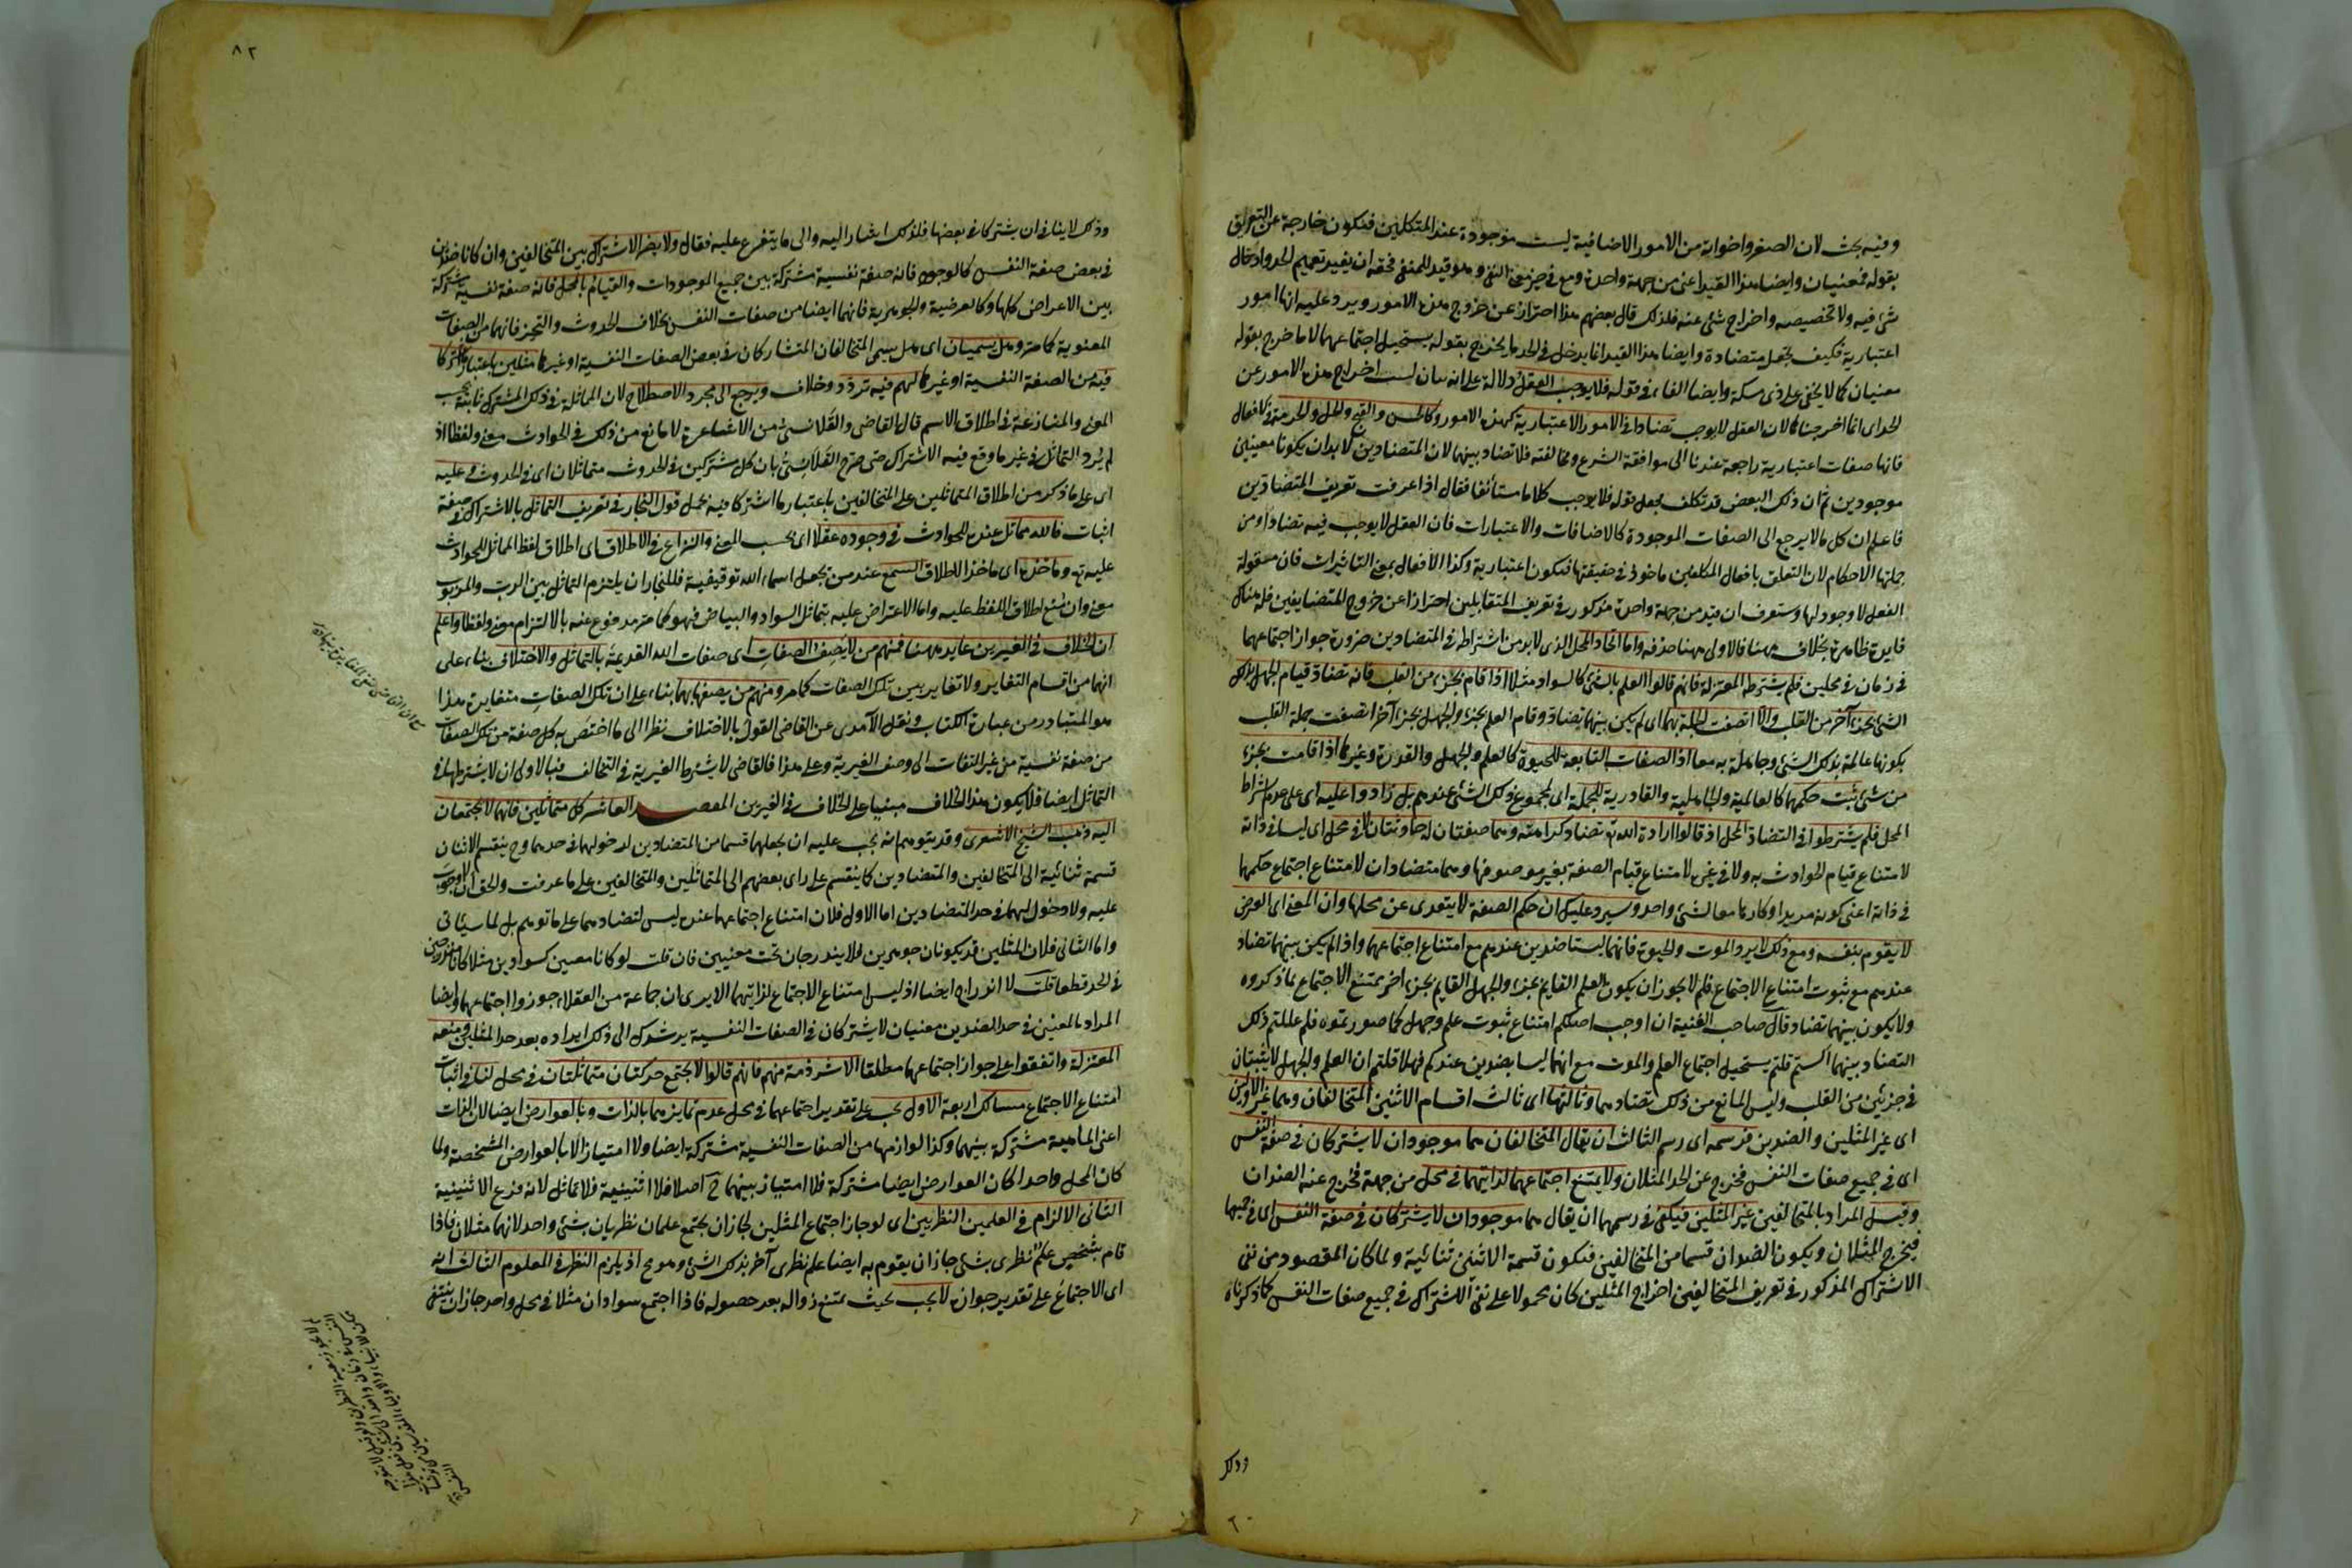 وفيه بحث لان الصغر واخواته من الامور الاضافية ليست موجودة عند المتكلمين فتكون خارجة عن التعريق
بقوله معنيان وايضا هذا القيد اعنى من جهة واحدة وقع فى حيز معنى النفى وهو قيد للمنفى فحقه ان يفيد تعميم الحد وادخال
شئ فيه ولا تخصيصه واخراج شئ عنه فلذلك قال بعضهم هذا احتراز عن خروج هذه الامور ويرد عليه انها امور
اعتبارية فكيف تجعل متضادة وايضا هذا القيد انما يدخل فى الحد ما يخرج بقوله يستحيل اجتماعهما لا ما خرج بقوله
معنيان كما لا يخفى على ذى مسكة وايضا الفاء فى قوله فلا يوجب العقل دلالة على انه بيان لسبب اخراج هذه الامور عن
الحد اى انما اخرجناها لان العقل لا يوجب تضادا فى الامور الاعتبارية كهذه الامور وكالحسن والقبح والحل والحرمة فى الافعال
فانها صفات اعتبارية راجعة عندنا الى موافقة الشرع ومخالفته فلا تضاد بينها لان المتضادين لابد ان يكونا معنيين
موجودين ثم ان ذلك البعض قد تكلف بجعل قوله فلا يوجب كلاما مستأنفا فقال اذا عرفت تعريف المتضادين
فاعلم ان كل ما لا يرجع الى الصفات الموجودة كالاضافات والاعتبارات فان العقل لا يوجب فيه تضادا ومن
جملتها الاحكام لان التعلق بافعال المكلفين ماخوذ فى حقيقتها فتكون اعتبارية وكذا الافعال بمعنى التاثيرات فان معقولة
الفعل لا وجود لها وستعرف ان قيد من جهة واحدة مذكور فى تعريف المتقابلين احترازا عن خروج المتضايفين فله هناك
فايدة ظاهرة بخلاف ههنا فالاولى ههنا حذفه واما اتحاد المحل الذى لابد من اشتراطه فى المتضادين ضرورة جواز اجتماعهما
فى زمان فى محلين فلم يشترطه المعتزلة فانهم قالوا العلم بالشئ كالسواد مثلا اذا قام بجزء من القلب فانه تضاد قيام الجهل بذلك
الشئ بجزء آخر من القلب والا اتصفت الجملة بهما اى لم يكن بينهما تضاد وقام العلم بجزء والجهل بجزء آخر اتصفت جملة القلب
بكونها عالمة بذلك الشئ وجاهلة به معا اذ الصفات التابعة للحيوة كالعلم والجهل والقدرة وغيرها اذا قامت بجزء
من شئ ثبت حكمها كالعالمية والجاهلية والقادرية للجملة اى لمجموع ذلك الشئ عندهم بل زادوا عليه اى على عدم اشتراط
المحل فلم يشترطوا فى التضاد المحل اذ قالوا ارادة الله تع تضاد كراهته وهما صفتان له حادثتان لا فى محل اى ليسا فى ذاته
لامتناع قيام الحوادث به ولا فى غيره لامتناع قيام الصفة بغير موصوفها وهما متضادان لامتناع اجتماع حكمهما
فى ذاته اعنى كونه مريدا وكارها معا لشئ واحد وسيرد عليك ان حكم الصفة لا يتعدى عن محلها وان المعنى اى العرض
لا يقوم بنفسه ومع ذلك لا يرد الموت والحيوة فانهما ليستا ضدين عندهم مع امتناع اجتماعهما واذا لم يكن بينهما تضاد
عندهم مع ثبوت امتناع الاجتماع فلم لا يجوز ان يكون العلم القايم بجزء والجهل القايم بجزء اخر يمتنع الاجتماع بما ذكروه
ولا يكون بينهما تضاد قال صاحب الغنية ان اوجب اصلكم امتناع ثبوت علم وجهل كما صورتموه فلم عللتم ذلك
التضاد بينهما الستم قلتم يستحيل اجتماع العلم والموت مع انهما ليسا بضدين عندكم فهلا قلتم ان العلم والجهل لا يثبتان
فى جزئين من القلب وليس المانع من ذلك تضادهما وثالثها اى ثالث اقسام الاثنين المتخالفان وهما غير الاولين
اى غير المثلين والضدين فرسمه اى رسم الثالث ان يقال المتخالفان هما موجودان لا يشتركان فى صفة النفس
اى فى جميع صفات النفس فخرج عن الحد المثلان ولا يمتنع اجتماعهما لذاتيهما فى محل من جهة فخرج عنه الضدان
وقيل المراد بالمتخالفين غير المثلين فيكفى فى رسمهما ان يقال هما موجودان لا يشتركان فى صفة النفس اى فى جميعها
فيخرج المثلان ويكون الضدان قسما من المتخالفين فتكون قسمة الاثنين ثنائية ولما كان المقصود من نفى
الاشتراك المذكور فى تعريف المتخالفين اخراج المثلين كان محمولا على نفى الاشتراك فى جميع صفات النفس كما ذكرناه
وذلك
٨٢
وذلك لا ينافى ان يشتركا فى بعضها فلذلك اشار اليه والى ما يتفرع عليه فقال ولا يضر الاشتراك بين المتخالفين وان كانا ضدين
فى بعض صفة النفس كالوجود فانه صفة نفسية مشتركة بين جميع الموجودات والقيام بالمحل فانه صفة نفسية مشتركة
بين الاعراض كلها وكالعرضية والجوهرية فانهما ايضا من صفات النفس بخلاف الحدوث والتحيز فانهما من الصفات
المعنوية كما مر وهل يسميان اى هل يسمى المتخالفان المتشاركان فى بعض الصفات النفسية او غيرها مثلين باعتبار ما اشتركا
فيه من الصفة النفسية او غيرها لهم فيه تردد وخلاف ويرجع الى مجرد الاصطلاح لان المماثلة فى ذلك المشترك ثابتة بحسب
المعنى والمنازعة فى اطلاق الاسم قال القاضى والقلانسى من الاشاعرة لا مانع من ذلك فى الحوادث معنى ولفظا اذ
لم يرد التماثل فى غير ما وقع فيه الاشتراك حتى صرح القلانسى بان كل مشتركين فى الحدوث متماثلان اى فى الحدوث وعليه
اى على ما ذكر من اطلاق المتماثلين على المتخالفين باعتبار ما اشتركا فيه يحمل قول النجار فى تعريف التماثل بالاشتراك فى صفة
اثبات فالله مماثل عنده للحوادث فى وجوده عقلا اى بحسب المعنى والنزاع فى الاطلاق اى اطلاق لفظ المماثل للحوادث
عليه تع وماخذه اى ماخذ الاطلاق السمع عند من يجعل اسماء الله توقيفية فللنجار ان يلتزم التماثل بين الرب والمربوب
معنى وان منع اطلاق اللفظ عليه واما الاعتراض عليه بتماثل السواد والبياض فهو كما مر مدفوع عنه بالالتزام معنى ولفظا واعلم
ان الخلاف فى الغيرين عايد ههنا فمنهم من لا يصف الصفات اى صفات الله القديمة بالتماثل والاختلاف بناء على
انهما من اقسام التغاير ولا تغاير بين تلك الصفات كما مر ومنهم من يصفها بهما بناء على ان تلك الصفات متغايرة هذا
هو المتبادر من عبارة الكتاب ونقل الآمدى عن القاضى القول بالاختلاف نظرا الى ما اختص به كل صفة من تلك الصفات
من صفة نفسية من غير التفات الى وصف الغيرية وعلى هذا فالقاضى لا يشترط الغيرية فى التخالف فبالاولى ان لا يشترطها فى
التماثل ايضا فلا يكون هذا الخلاف مبنيا على الخلاف فى الغيرين المقصد العاشر كل متماثلين فانهما لا يجتمعان
اليه ذهب الشيخ الاشعرى وقد يتوهم انه يجب عليه ان يجعلهما قسما من المتضادين لدخولهما فى حدهما وح ينقسم الاثنان
قسمة ثنائية الى المتخالفين والمتضادين كما ينقسم على راى بعضهم الى المتماثلين والمتخالفين على ما عرفت والحق ان لا وجوب
عليه ولا دخول لهما فى حد المتضادين اما الاول فلان امتناع اجتماعهما عنده ليس لتضادهما على ما توهم بل لما سيأتى
واما الثانى فلان المثلين قد يكونان جوهرين فلا يندرجان تحت معنيين فان قلت لو كانا معنيين كسوادين مثلا كانا مندرجين
فى الحد قطعا قلت لا اندراج ايضا اذ ليس امتناع الاجتماع لذاتيهما الا يرى ان جماعة من العقلاء جوزوا اجتماعهما وايضا
المراد بالمعنيين فى حد الضدين معنيان لا يشتركان فى الصفات النفسية يرشدك الى ذلك ايراده بعد حد المثلين ومنعه
المعتزلة واتفقوا على جواز اجتماعهما مطلقا الا شرذمة منهم فانهم قالوا لا يجتمع حركتان متماثلتان فى محل لنا فى اثبات
امتناع الاجتماع مسالك اربعة الاول يجب على تقدير اجتماعهما فى محل عدم تمايزهما بالذات وبالعوارض ايضا لان الذات
اعنى الماهية مشتركة بينهما وكذا لوازمها من الصفات النفسية مشتركة ايضا ولا امتياز الا بالعوارض المشخصة ولما
كان المحل واحدا كان العوارض ايضا مشتركة فلا امتياز بينهما ح اصلا فلا اثنينية فلا تماثل لانه فرع الاثنينية
الثانى الالزام فى العلمين النظريين اى لو جاز اجتماع المثلين لجاز ان يجتمع علمان نظريان بشئ واحد لانهما مثلان فاذا
قام بشخص علم نظرى بشئ جاز ان يقوم به ايضا علم نظرى آخر بذلك الشئ وهو مح اذ يلزم النظر فى المعلوم الثالث انه
اى الاجتماع على تقدير جوازه لا يجب بحيث يمتنع زواله بعد حصوله فاذا اجتمع سوادان مثلا فى محل واحد جاز ان ينتفى